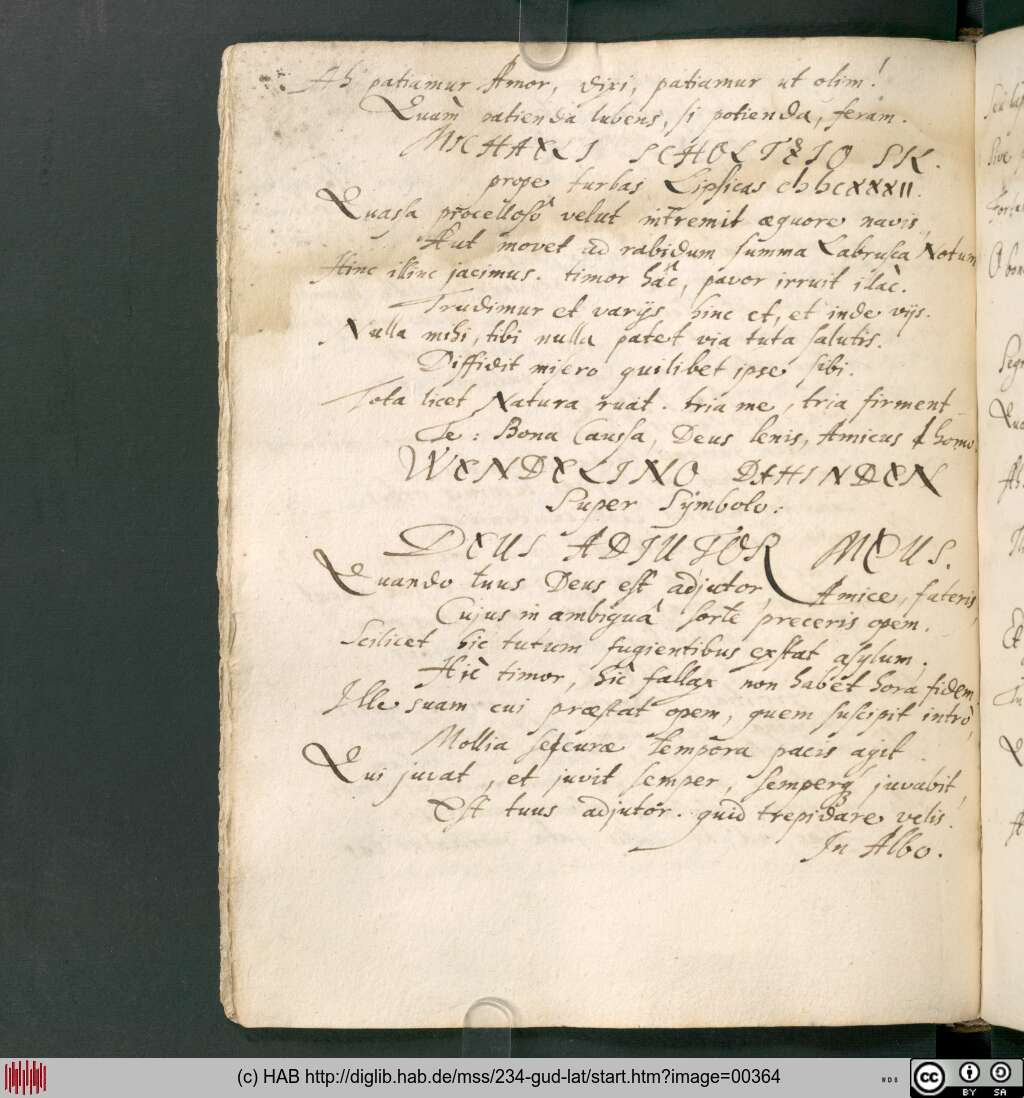 Ah patiamur Amor, dixi, patiamur ut olim!
Quàm patienda lubens, si potienda, feram.
MICHAELI SCHOLTZIO SIL.
prope turbas Lipsicas
Quassa procelloso velut intremit æquore navis,
Aut movet ad rabidum summa Labrusca Notum
Hinc illinc jacimus. timor hâc, pavor irruit illàc.
Trudimur et varijs hinc et, et inde vijs.
Nulla mihi, tibi nulla patet via tuta salutis.
Diffidit misero quilibet ipse sibi.
Tota licet Natura ruat. tria me, tria firment
Te: Bona Caussa, Deus lenis, Amicus homo.
WENDELINO DAHINDEN
Super Symbolo:
DEUS ADJUTOR MEUS.
Quando tuus Deus est adjutor, Amice, fateris,
Cujus in ambiguâ sorte preceris opem.
Scilicet hic tutum fugientibus exstat asylum;
Hîc timor, hîc fallax non habet hora fidem
Ille suam cui præstat opem, quem suscipit intrò,
Mollia securæ tempora pacis agit.
Qui juvat, et juvit semper, semperq3 juvabit,
Est tuus adjutor. quid trepidare velis.
In Albo.
(c) HAB http://diglib.hab.de/mss/234-gud-lat/start.htm?image=00364
cc BY SA